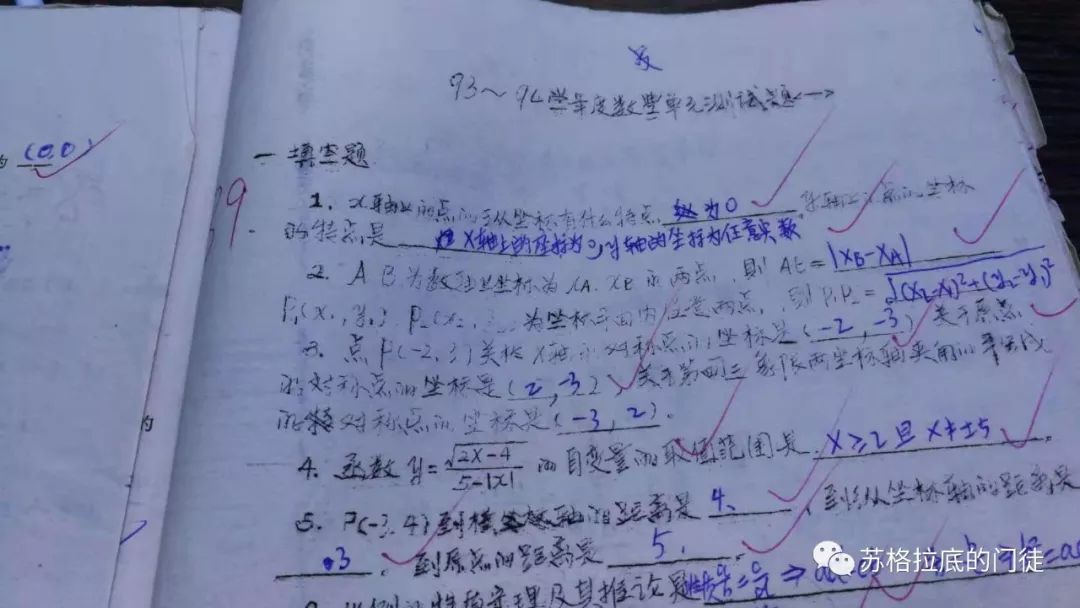 (0,0)
93~94学年度数学单元测试题<一>
一 填空题
1. x轴上的点的纵坐标有什么特点 为0
的特点是 x轴上的坐标为0,y轴的坐标为任意实数
2. A B 为数轴上坐标为 xA xB 的两点, 则 AB = |XB-XA|
P1(x1,y1) P2(x2, 为坐标平面内任意两点, 则 P1P2 = √(X2-X1)²+(y2-y1)²
3. 点P(-2,3)关于x轴的对称点的坐标是(-2,-3) 关于原点
的对称点的坐标是(2,-3) 关于第 三象限两坐标轴夹角的平分线
的对称点的坐标是(-3,2).
4. 函数 y=√2X-4/5-|X| 的自变量的取值范围是 X≥2且X≠±5
5. P(-3,4)到横坐标轴的距离是 4. 到纵坐标轴的距离是
3. 到原点的距离是 5.
定理及其推论
的
苏格拉底的门徒